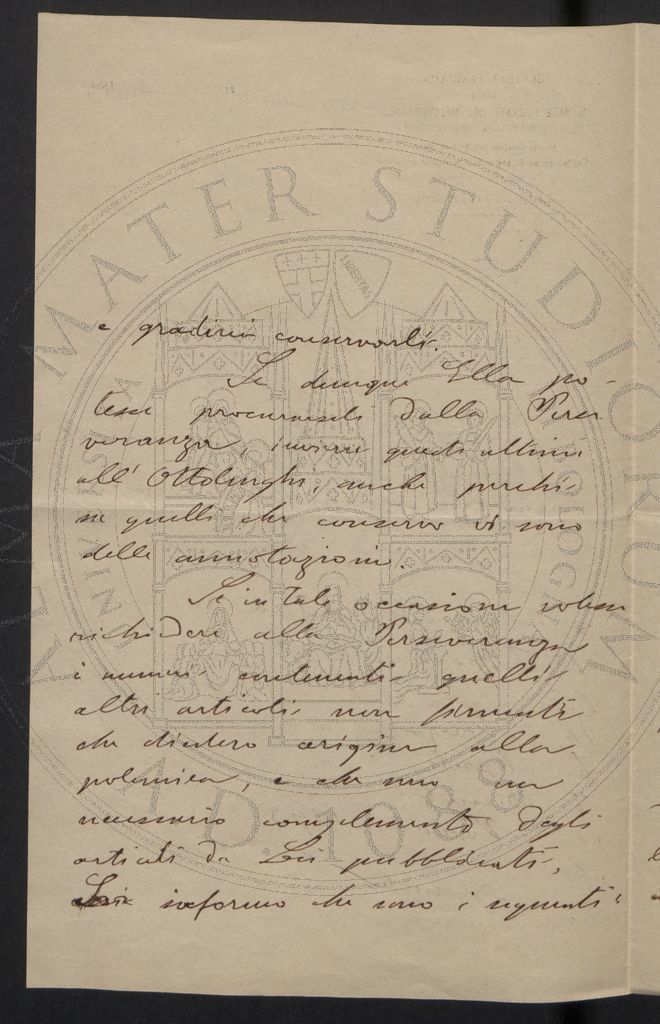 e gradirei conservarli.
Se dunque Ella po-
tesse procurarseli dalla Perse
veranza, invierei questi ultimi
all' Ottolenghi, anche perchè
su quelli che conservo vi sono
delle annotazioni.
Se in tale occasione volesse
richiedere alla Perseveranza
i numeri contenenti quelli
altri articoli non firmati
che diedero origine alla
polemica, e che sono un
necessario complemento degli
articoli da Lei pubblicati,
informo che sono i seguenti:
ALMA MATER STUDIORUM
A.D. 1088
LIBERTAS